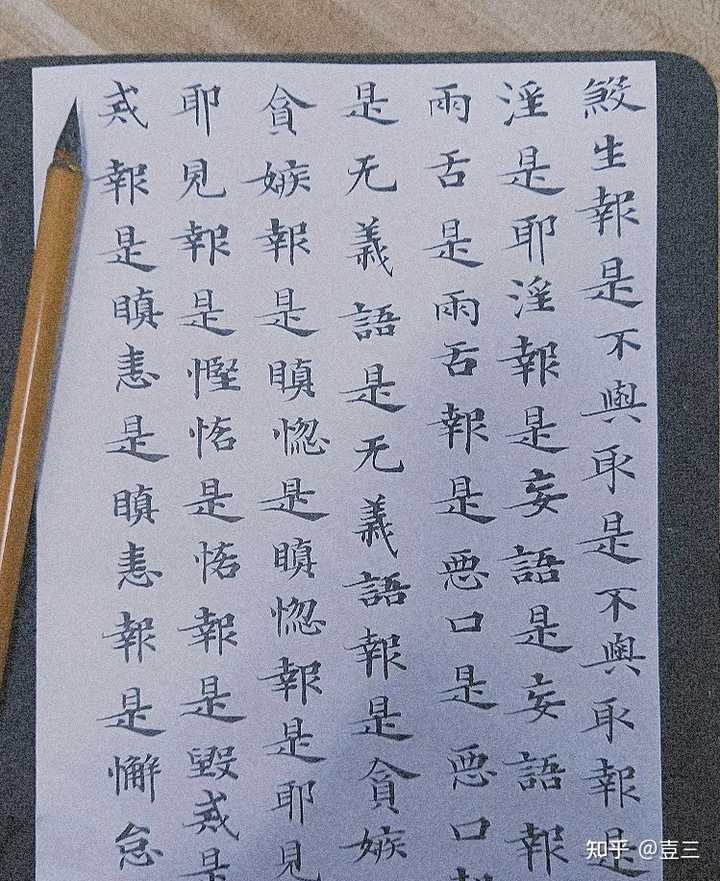 煞生報是不與取是不與取報是
淫是耶淫報是妄語是妄語報
兩舌是兩舌報是惡口是惡口報
是无義語是无義語報是貪嫉
貪嫉報是瞋惱是瞋惱報是耶見
耶見報是慳悋是悋報是毀戒是
戒報是瞋恚是瞋恚報是懈怠
知乎 @壹三